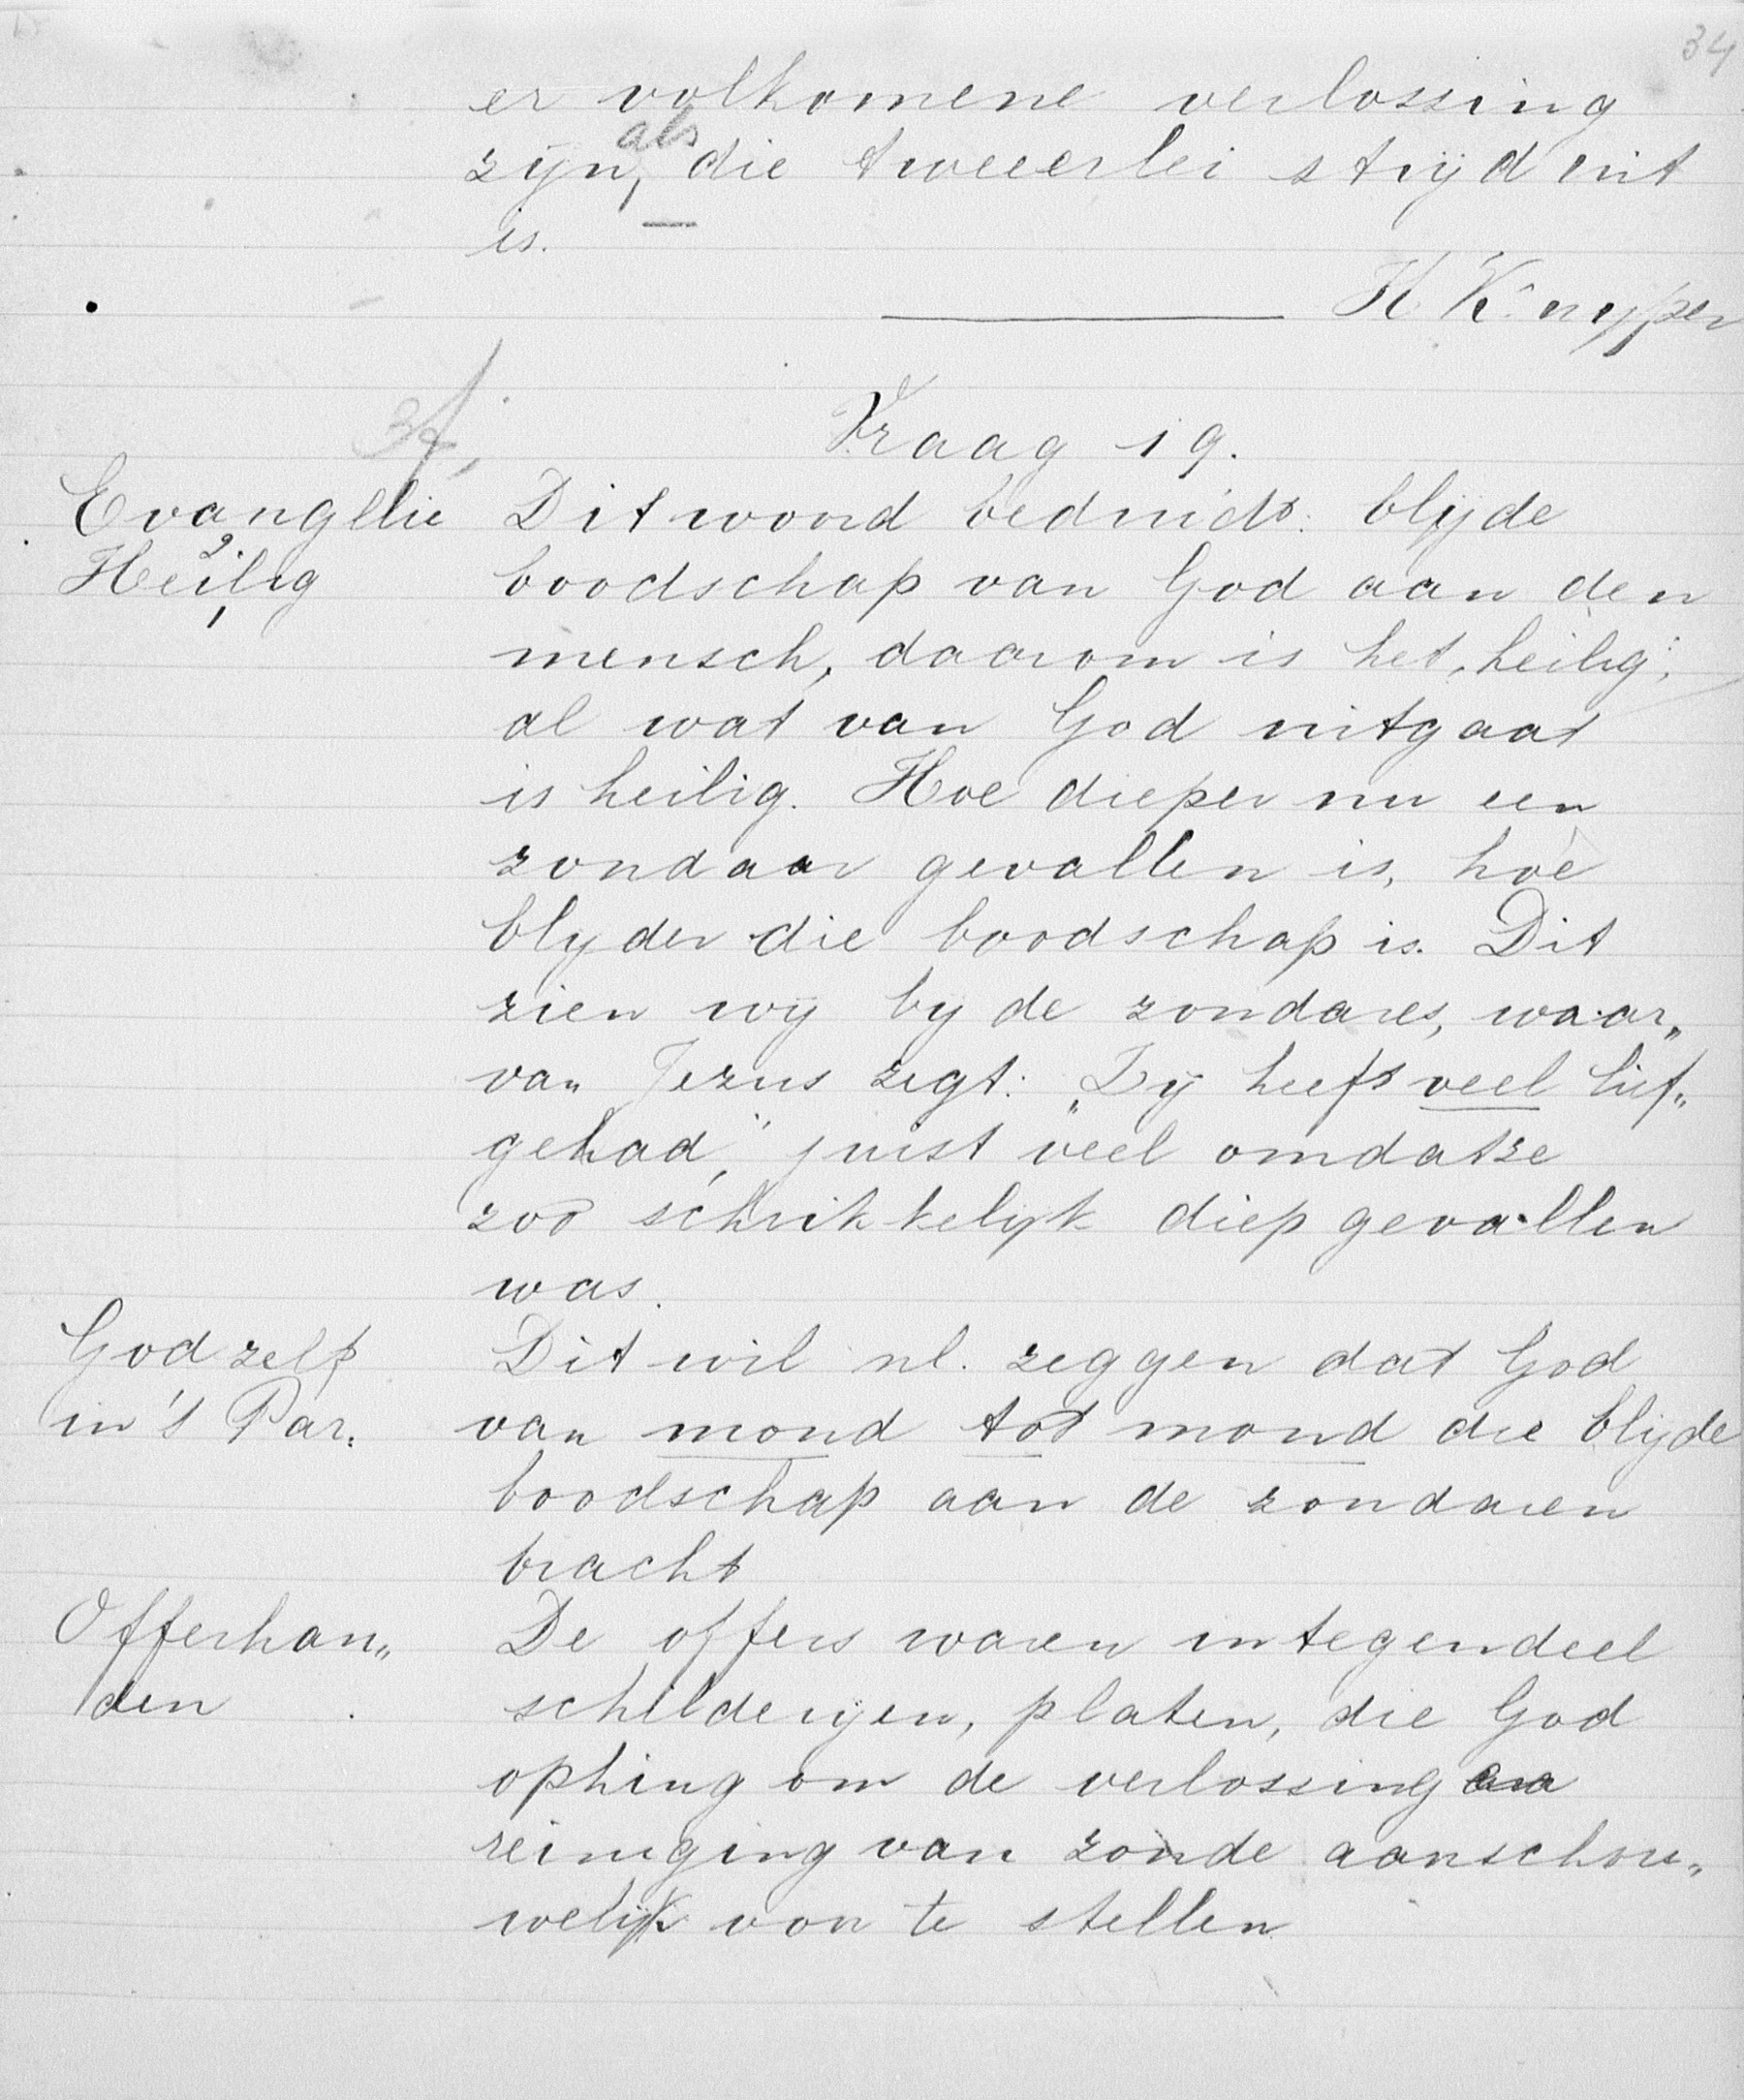 34
er volkomene verlossing
als
zijn, die tweeerlei strijd uit
is.
H. Knijper
Vraag 19.
Evangelie Dit woord beduidt: blijde
Heilig boodschap van God aan den
mensch, daarom is het „heilig";
al wat van God uitgaat
is heilig. Hoe dieper nu een
zondaar gevallen is, hoe
blyder die boodschap is. Dit
zien wij by de zondares, waar„
van Jezus zegt: „Zij heeft veel lief„
gehad," juist veel omdat ze
zoo schrikkelijk diep gevallen
was.
God zelf Dit wil nl. zeggen dat God
in 't Par. van mond tot mond die blijde
boodschap aan de zondaren
bracht
Offerhan„ De offers waren integendeel
den schilderijen, platen, die God
ophing om de verlossing
reiniging van zonde aanschou„
welijk voor te stellen